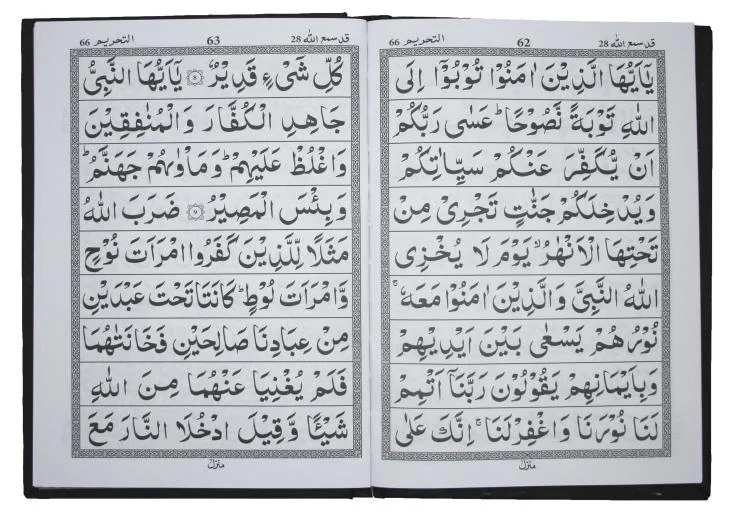 قد سمع الله 28 62 التحريم 66
يٰۤاَيُّهَا الَّذِيْنَ اٰمَنُوْا تُوْبُوْۤا اِلَى
اللّٰهِ تَوْبَةً نَّصُوْحًا ؕ عَسٰى رَبُّكُمْ
اَنْ يُّكَفِّرَ عَنْكُمْ سَيِّاٰتِكُمْ
وَيُدْخِلَكُمْ جَنّٰتٍ تَجْرِىْ مِنْ
تَحْتِهَا الْاَنْهٰرُ ۙ يَوْمَ لَا يُخْزِى
اللّٰهُ النَّبِىَّ وَالَّذِيْنَ اٰمَنُوْا مَعَهٗ ۚ
نُوْرُهُمْ يَسْعٰى بَيْنَ اَيْدِيْهِمْ
وَبِاَيْمَانِهِمْ يَقُوْلُوْنَ رَبَّنَاۤ اَتْمِمْ
لَنَا نُوْرَنَا وَاغْفِرْ لَنَا ۚ اِنَّكَ عَلٰى
منزل
قد سمع الله 28 63 التحريم 66
كُلِّ شَىْءٍ قَدِيْرٌ ۝۸ يٰۤاَيُّهَا النَّبِىُّ
جَاهِدِ الْكُفَّارَ وَالْمُنٰفِقِيْنَ
وَاغْلُظْ عَلَيْهِمْ ؕ وَمَاْوٰىهُمْ جَهَنَّمُ ؕ
وَبِئْسَ الْمَصِيْرُ ۝۹ ضَرَبَ اللّٰهُ
مَثَلًا لِّلَّذِيْنَ كَفَرُوا امْرَاَتَ نُوْحٍ
وَّامْرَاَتَ لُوْطٍ ؕ كَانَتَا تَحْتَ عَبْدَيْنِ
مِنْ عِبَادِنَا صَالِحَيْنِ فَخَانَتٰهُمَا
فَلَمْ يُغْنِيَا عَنْهُمَا مِنَ اللّٰهِ
شَيْـًٔا وَّقِيْلَ ادْخُلَا النَّارَ مَعَ
منزل